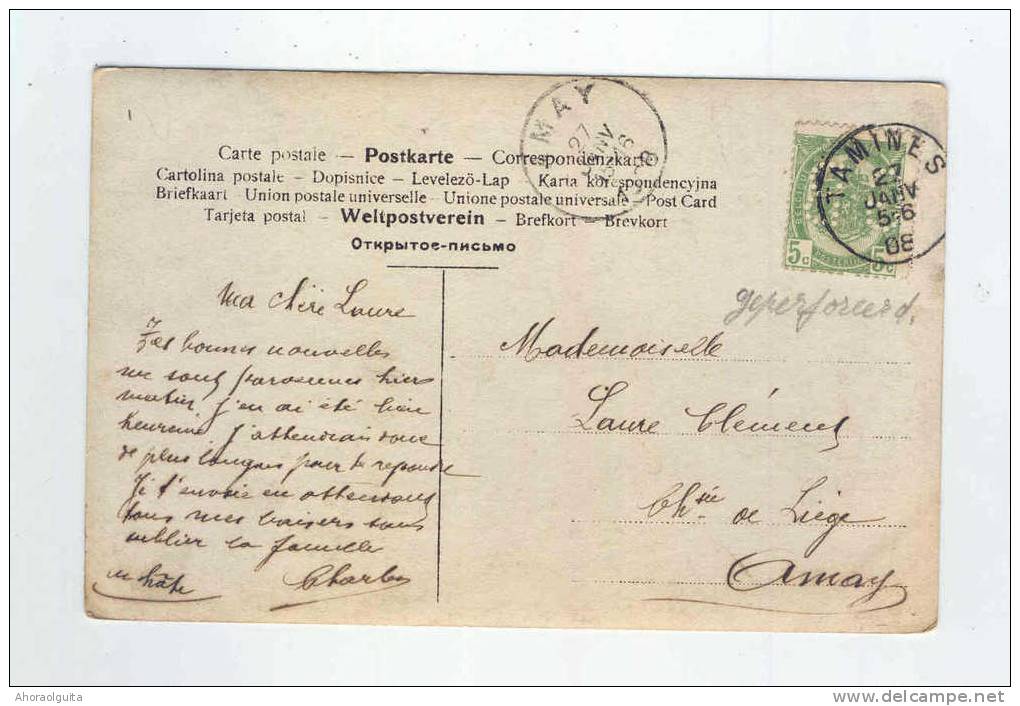 Carte postale — Postkarte — Correspondenzkarte
Cartolina postale — Dopisnice — Levelező-Lap — Karta korespondencyjna
Briefkaart - Union postale universelle - Unione postale universale - Post Card
Tarjeta postal — Weltpostverein — Brefkort — Brevkort
Открытое-письмо
MAY
27
JANV
1908
TAMINES
27
JANV
5-6
08
5c 5c
geperforeerd.
Ma chère Laure
Tes bonnes nouvelles
me sont parvenues hier
matin, j'en ai été bien
heureuse. J'attendrai donc
de plus longues pour te repondre
Je t'envoie en attendant
tous mes baisers sans
oublier la famille
en hâte Charles
Mademoiselle
Laure Clément
Chsée de Liège
Amay
Ahoraolguita
delcampe.net